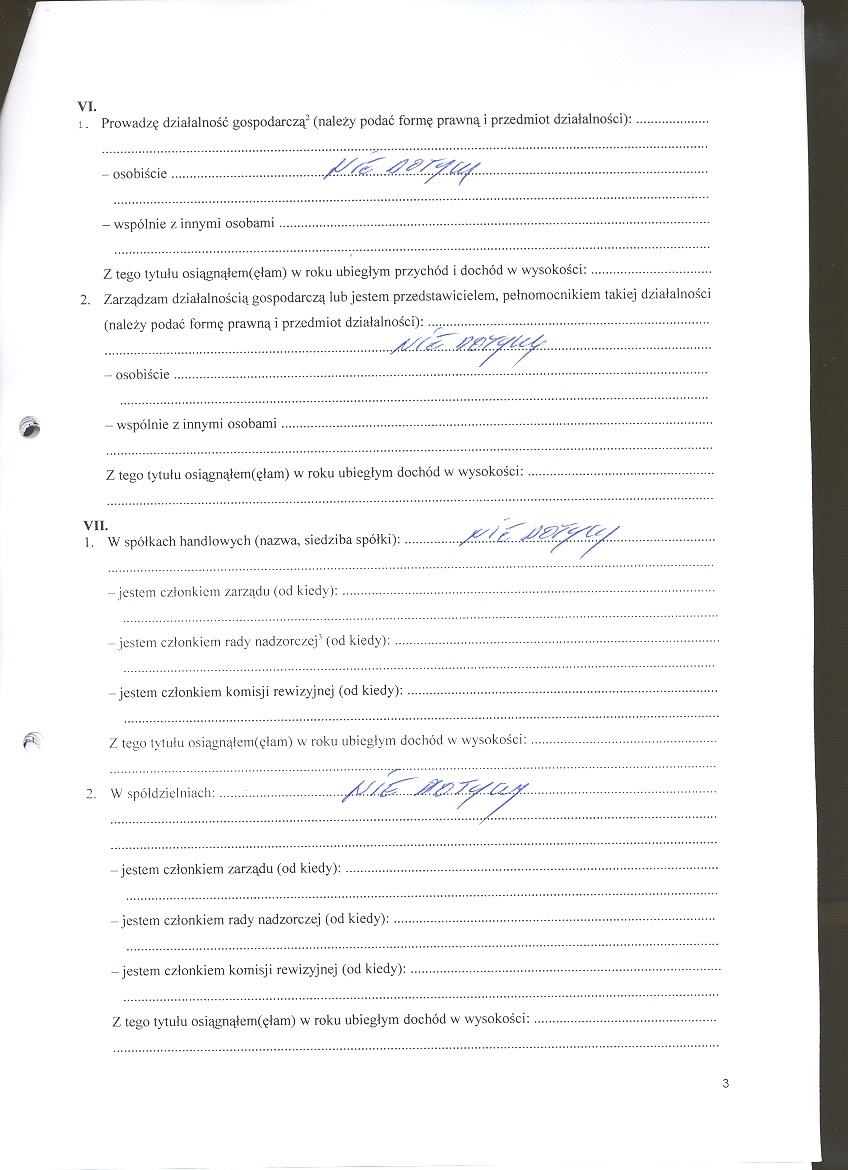 VI.
1. Prowadzę działalność gospodarczą² (należy podać formę prawną i przedmiot działalności): ....................
....................
– osobiście .................... NIE DOTYCZY ....................
....................
– wspólnie z innymi osobami ....................
....................
Z tego tytułu osiągnąłem(ęłam) w roku ubiegłym przychód i dochód w wysokości: ....................
2. Zarządzam działalnością gospodarczą lub jestem przedstawicielem, pełnomocnikiem takiej działalności
(należy podać formę prawną i przedmiot działalności): ....................
.................... NIE DOTYCZY ....................
– osobiście ....................
....................
– wspólnie z innymi osobami ....................
....................
Z tego tytułu osiągnąłem(ęłam) w roku ubiegłym dochód w wysokości: ....................
....................
VII.
1. W spółkach handlowych (nazwa, siedziba spółki): .................... NIE DOTYCZY ....................
....................
– jestem członkiem zarządu (od kiedy): ....................
....................
– jestem członkiem rady nadzorczej³ (od kiedy): ....................
....................
– jestem członkiem komisji rewizyjnej (od kiedy): ....................
....................
Z tego tytułu osiągnąłem(ęłam) w roku ubiegłym dochód w wysokości: ....................
....................
2. W spółdzielniach: .................... NIE DOTYCZY ....................
....................
....................
– jestem członkiem zarządu (od kiedy): ....................
....................
– jestem członkiem rady nadzorczej (od kiedy): ....................
....................
– jestem członkiem komisji rewizyjnej (od kiedy): ....................
....................
Z tego tytułu osiągnąłem(ęłam) w roku ubiegłym dochód w wysokości: ....................
....................
3